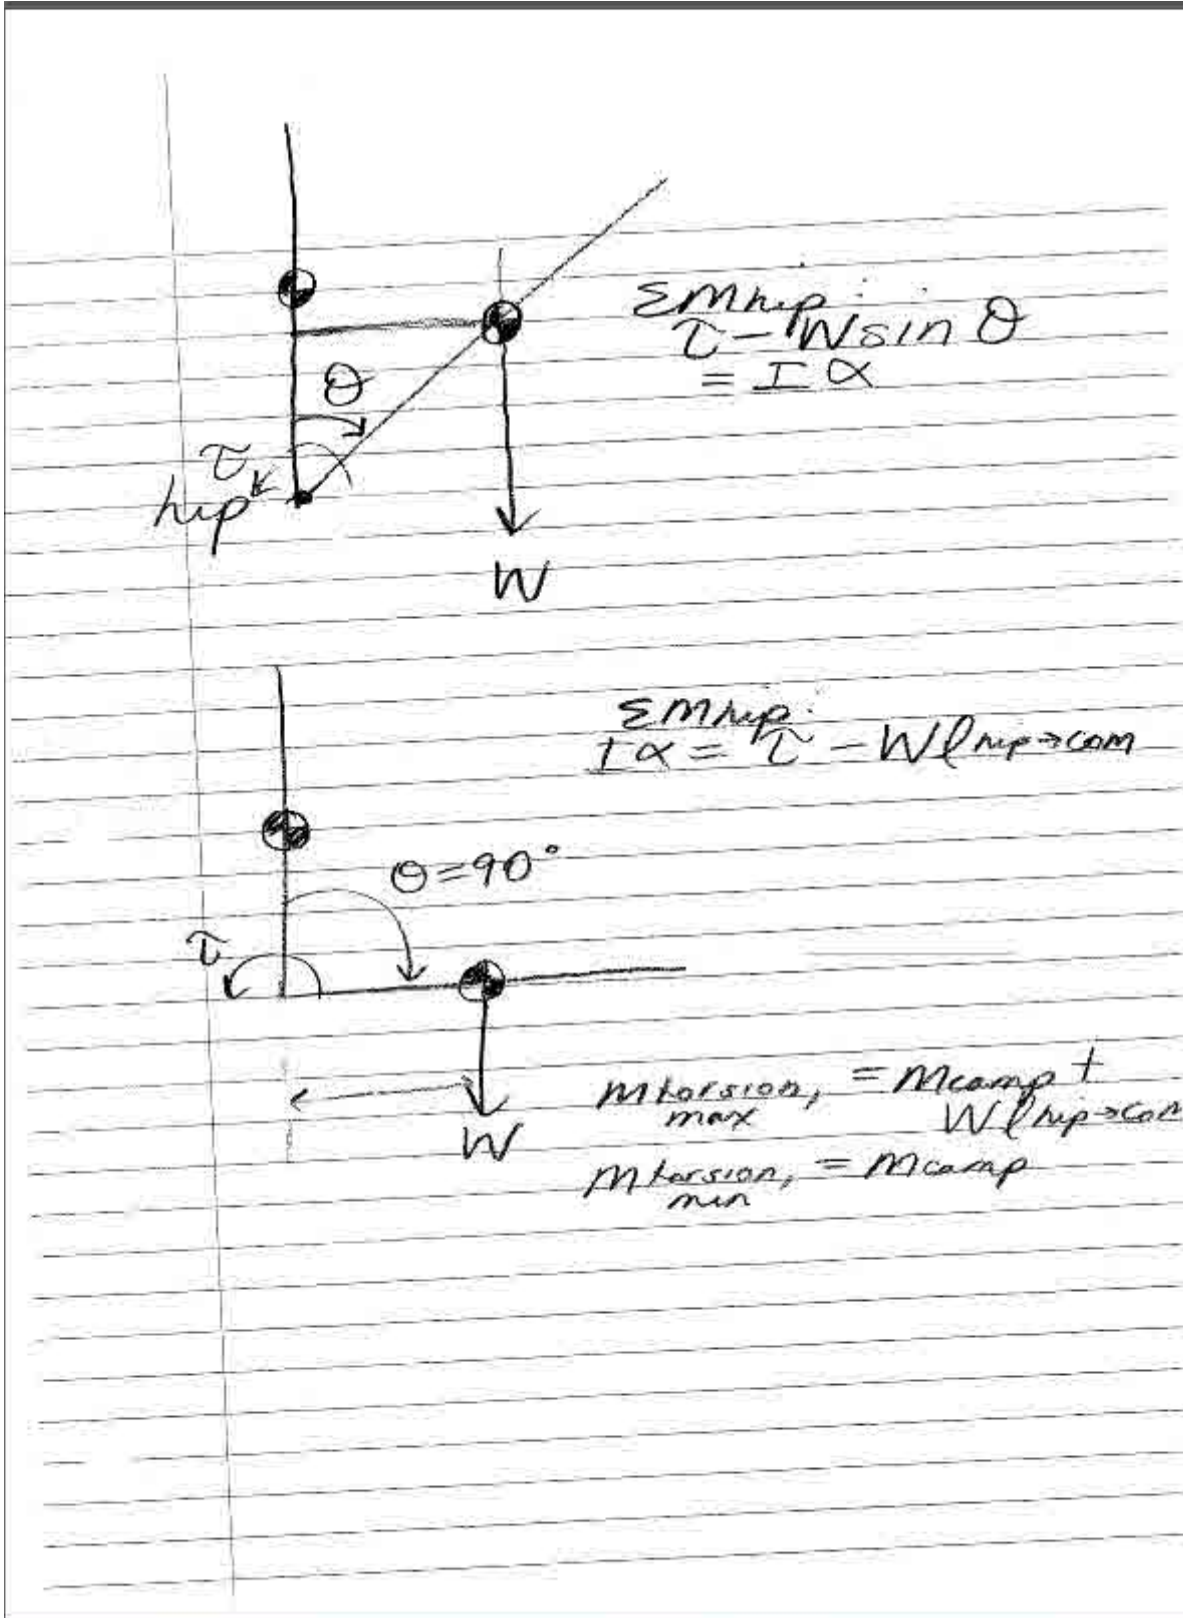 ΣMhip:
τ - W sin θ
= I α
θ
τ
hip
W
ΣMhip:
Iα = τ - Wl hip→com
θ=90°
τ
Mtorsion, max = Mcamp +
Wl hip→com
W
Mtorsion, min = Mcamp